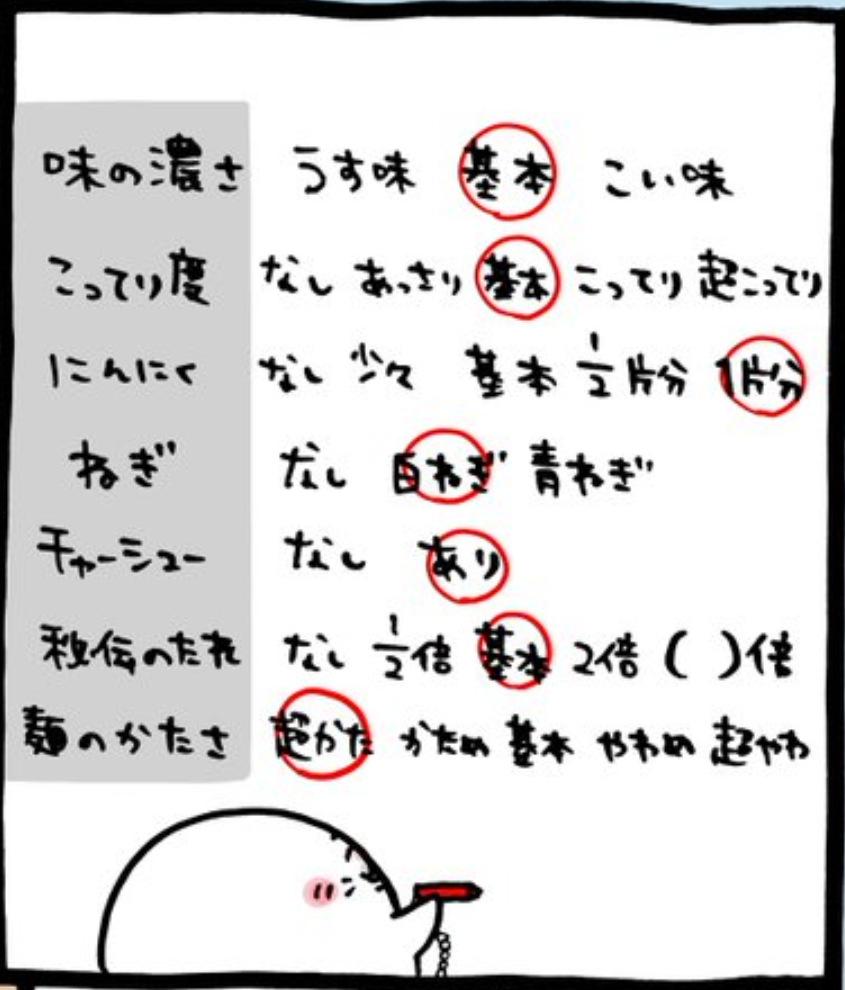 味の濃さ うす味 基本 こい味
こってり度 なし あっさり 基本 こってり 超こってり
にんにく なし 少々 基本 1/2片分 1片分
ねぎ なし 白ねぎ 青ねぎ
チャーシュー なし あり
秘伝のたれ なし 1/2倍 基本 2倍 ( )倍
麺のかたさ 超かた かため 基本 やわめ 超やわ